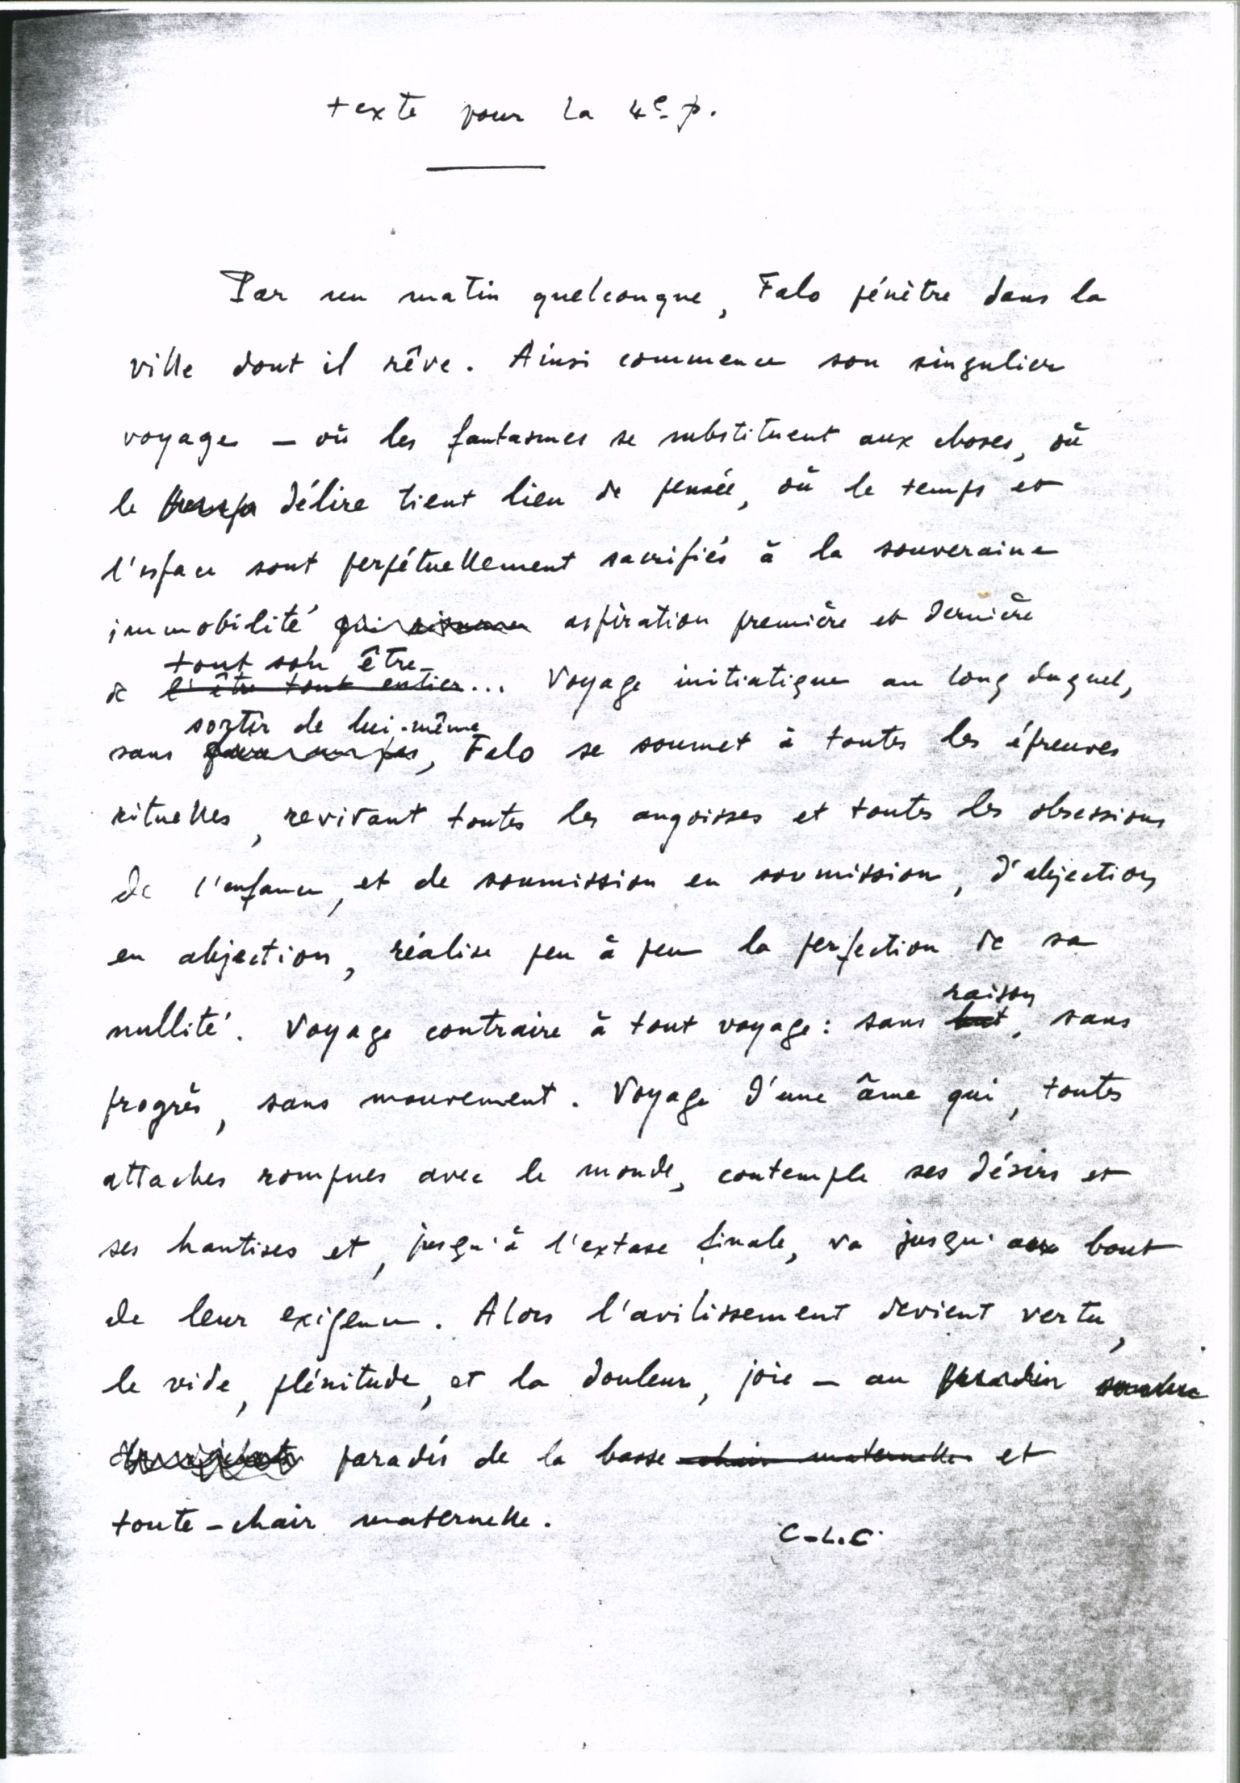 texte pour la 4e p.
Par un matin quelconque, Falo pénètre dans la
ville dont il rêve. Ainsi commence son singulier
voyage – où les fantasmes se substituent aux choses, où
le délire tient lieu de pensée, où le temps et
l'espace sont perpétuellement sacrifiés à la souveraine
immobilité aspiration première et dernière
tout son être
de l'être tout entier... Voyage initiatique au long duquel,
sortir de lui-même
sans , Falo se soumet à toutes les épreuves
rituelles, revivant toutes les angoisses et toutes les obsessions
de l'enfance, et de soumission en soumission, d'abjection
en abjection, réalise peu à peu la perfection de sa
nullité. Voyage contraire à tout voyage : sans
raison
but, sans
progrès, sans mouvement. Voyage d'une âme qui, toutes
attaches rompues avec le monde, contemple ses désirs et
ses hantises et, jusqu'à l'extase finale, va jusqu'au bout
de leur exigence. Alors l'avilissement devient vertu,
le vide, plénitude, et la douleur, joie – au
paradis de la basse chair maternelle et
toute-chair maternelle.
C-L.C.